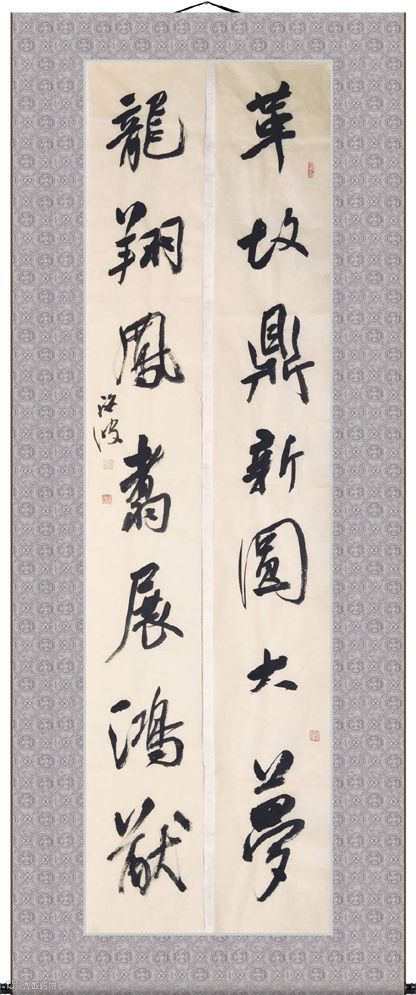 革故鼎新圆大夢
龍翔鳳翥展鴻猷